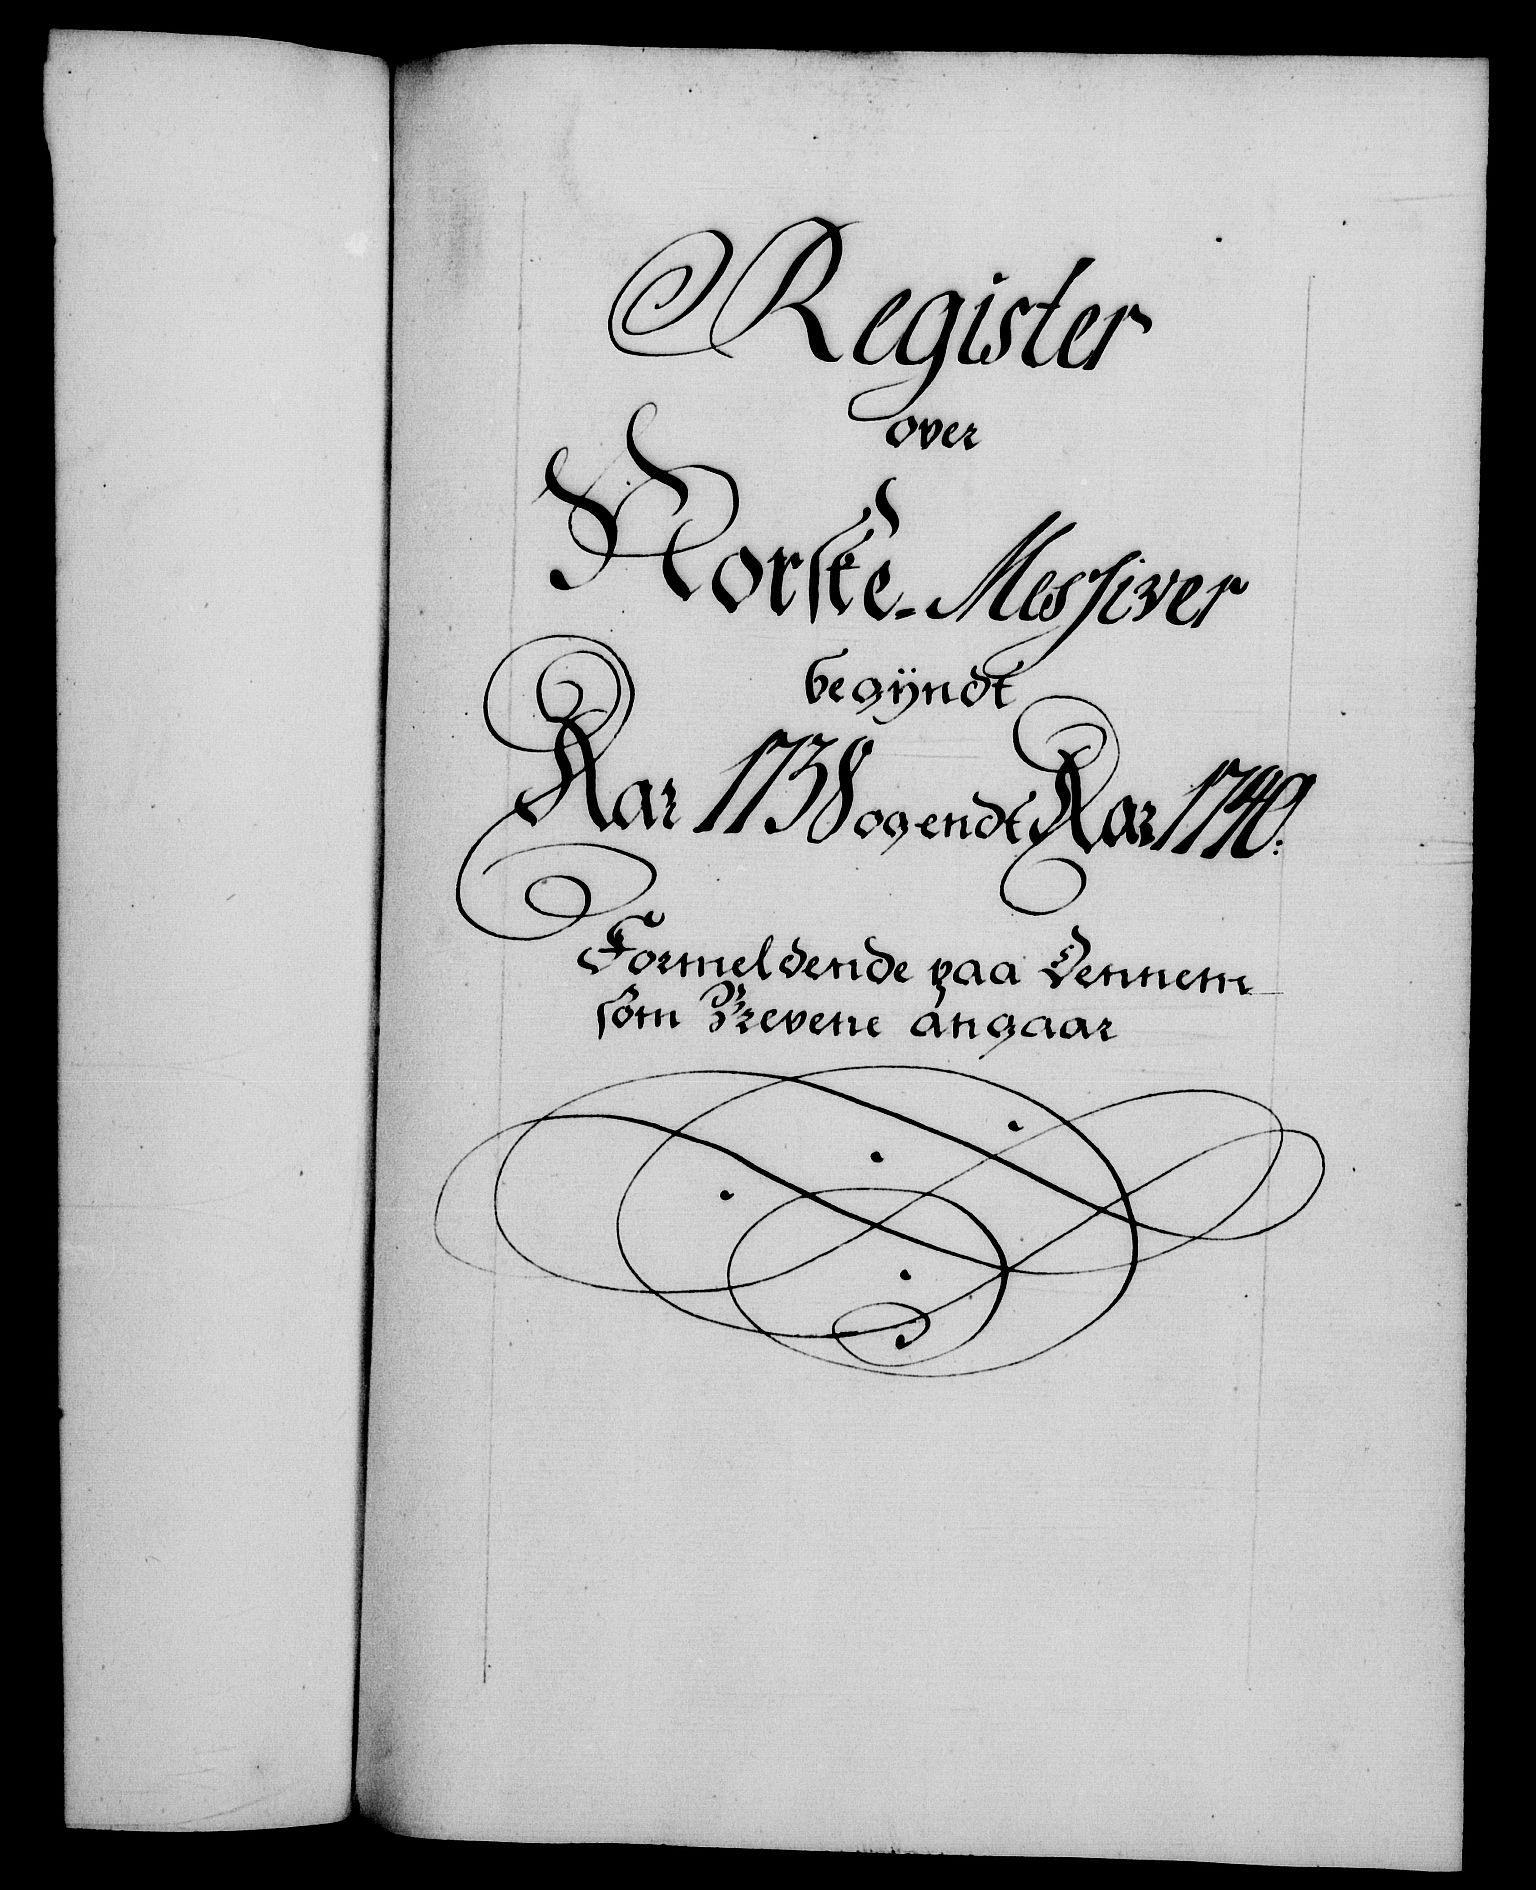 Register
over
Norske Messiver
begÿndt
Aar 1738 og endt Aar 1740.
Formeldende paa Dennem
som Brevene angaar